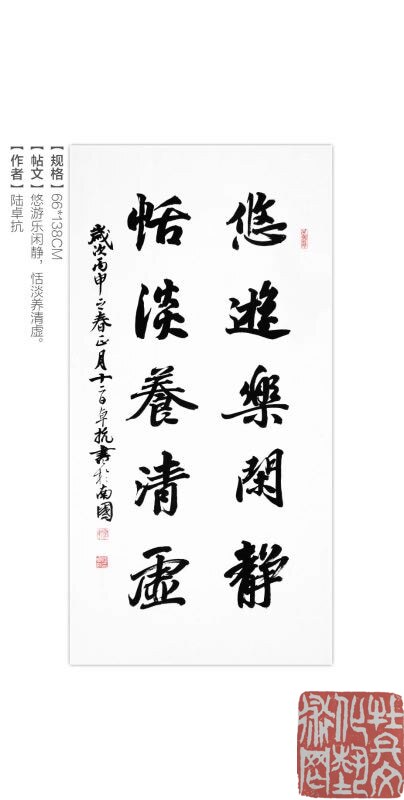 悠遊樂閑靜
恬淡養清虛
歲次丙申之春正月十二日卓抗書於南國
【规格】66*138CM
【帖文】悠游乐闲静，恬淡养清虚。
【作者】陆卓抗